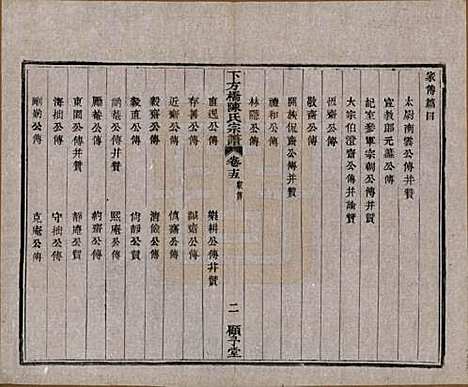 家傳篇目
太尉南雲公傳并贊
宣教郎元護公傳
記室參軍宗朝公傳并贊
大宗伯澄齋公傳并贊
恆齋公傳
敬齋公傳
興族侃齋公傳并贊
禮和公傳
林隱公傳
下方橋陳氏宗譜 卷十五 家傳
二 顧予堂
直運公傳
樂耕公傳并贊
存菴公傳
誠齋公傳
近齋公傳
慎齋公傳
毅齋公傳
清儉公傳
毅直公傳
侍靜公贊
訥菴公傳并贊
熙庵公傳
勵菴公傳
約齋公贊
東園公傳并贊
靜庵公贊
海拙公傳
守拙公傳
剛訥公傳
克庵公傳